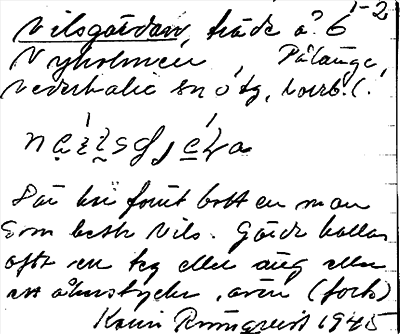 Nilsgården, träde å? 6 1-2
Nyholmen, Pålänge,
Nederkalix sn o tg, Norrb. l.
Där har förut bott en man
Som hette Nils. Gärde kallas
ofta en teg eller äng eller
ett åkerstycke, även (forts)
Karin Rönnqvist 1945